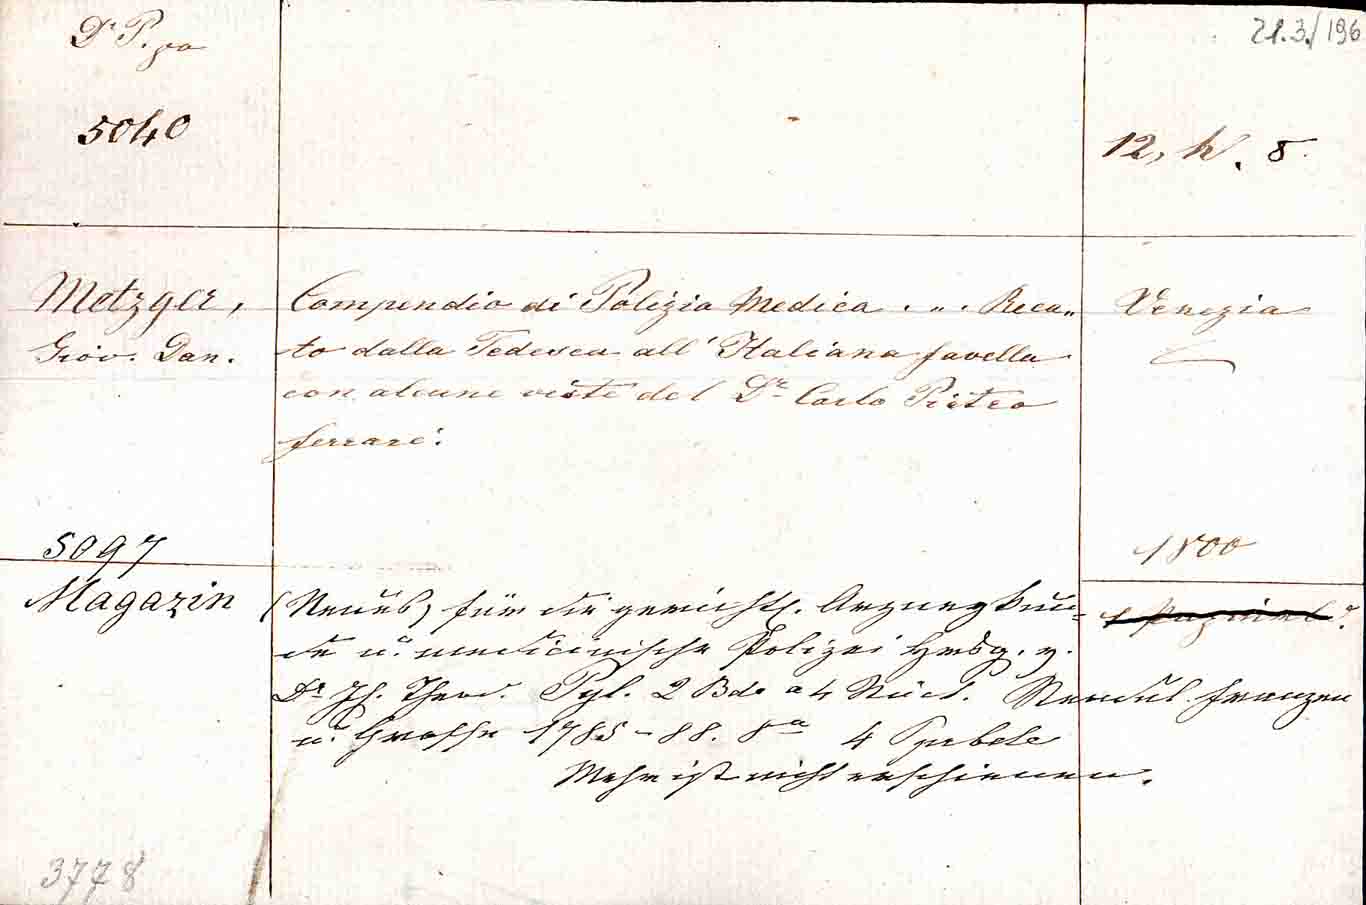 21.3./196
Dr P. pa
5040
12, W. 8.
Metzger,
Giov. Dan.
Compendio di Polizia Medica . „ . Reca„
to dalla Tedesca all' Italiana favella
con alcune viste del Dr Carlo Pietro
ferrari.
Venezia
1800
5097
Magazin
(Neues) für die gerichtl. Arzneykun-
de u. medicinische Polizei Hrsg. v.
Dr Jh. Theod. Pyl. 2 Bde a 4 Stück. Stendal. Franzen
u. Grosse 1785-88. 8a 4
Mehr ist nicht erschienen.
3778